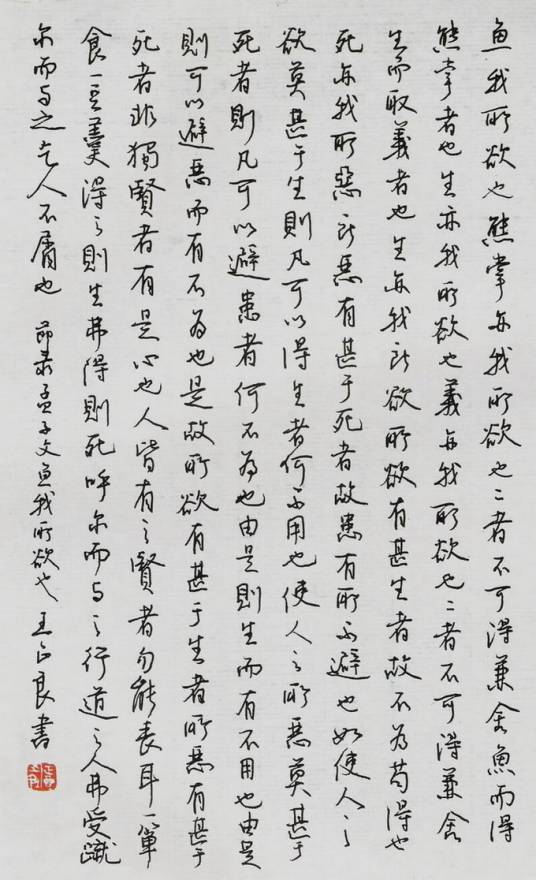 鱼我所欲也熊掌亦我所欲也二者不可得兼舍魚而得
熊掌者也生亦我所欲也義亦我所欲也二者不可得兼舍
生而取義者也生亦我所欲所欲有甚生者故不為苟得也
死亦我所惡所惡有甚于死者故患有所不避也如使人之
欲莫甚于生則凡可以得生者何不用也使人之所惡莫甚于
死者則凡可以避患者何不為也由是則生而有不用也由是
則可以避惡而有不為也是故所欲有甚于生者所惡有甚于
死者非獨賢者有是心也人皆有之賢者勿能喪耳一簞
食一豆羹得之則生弗得則死呼尔而与之行道之人弗受蹴
尔而与之乞人不屑也 節录孟子文鱼我所欲也 王正良書